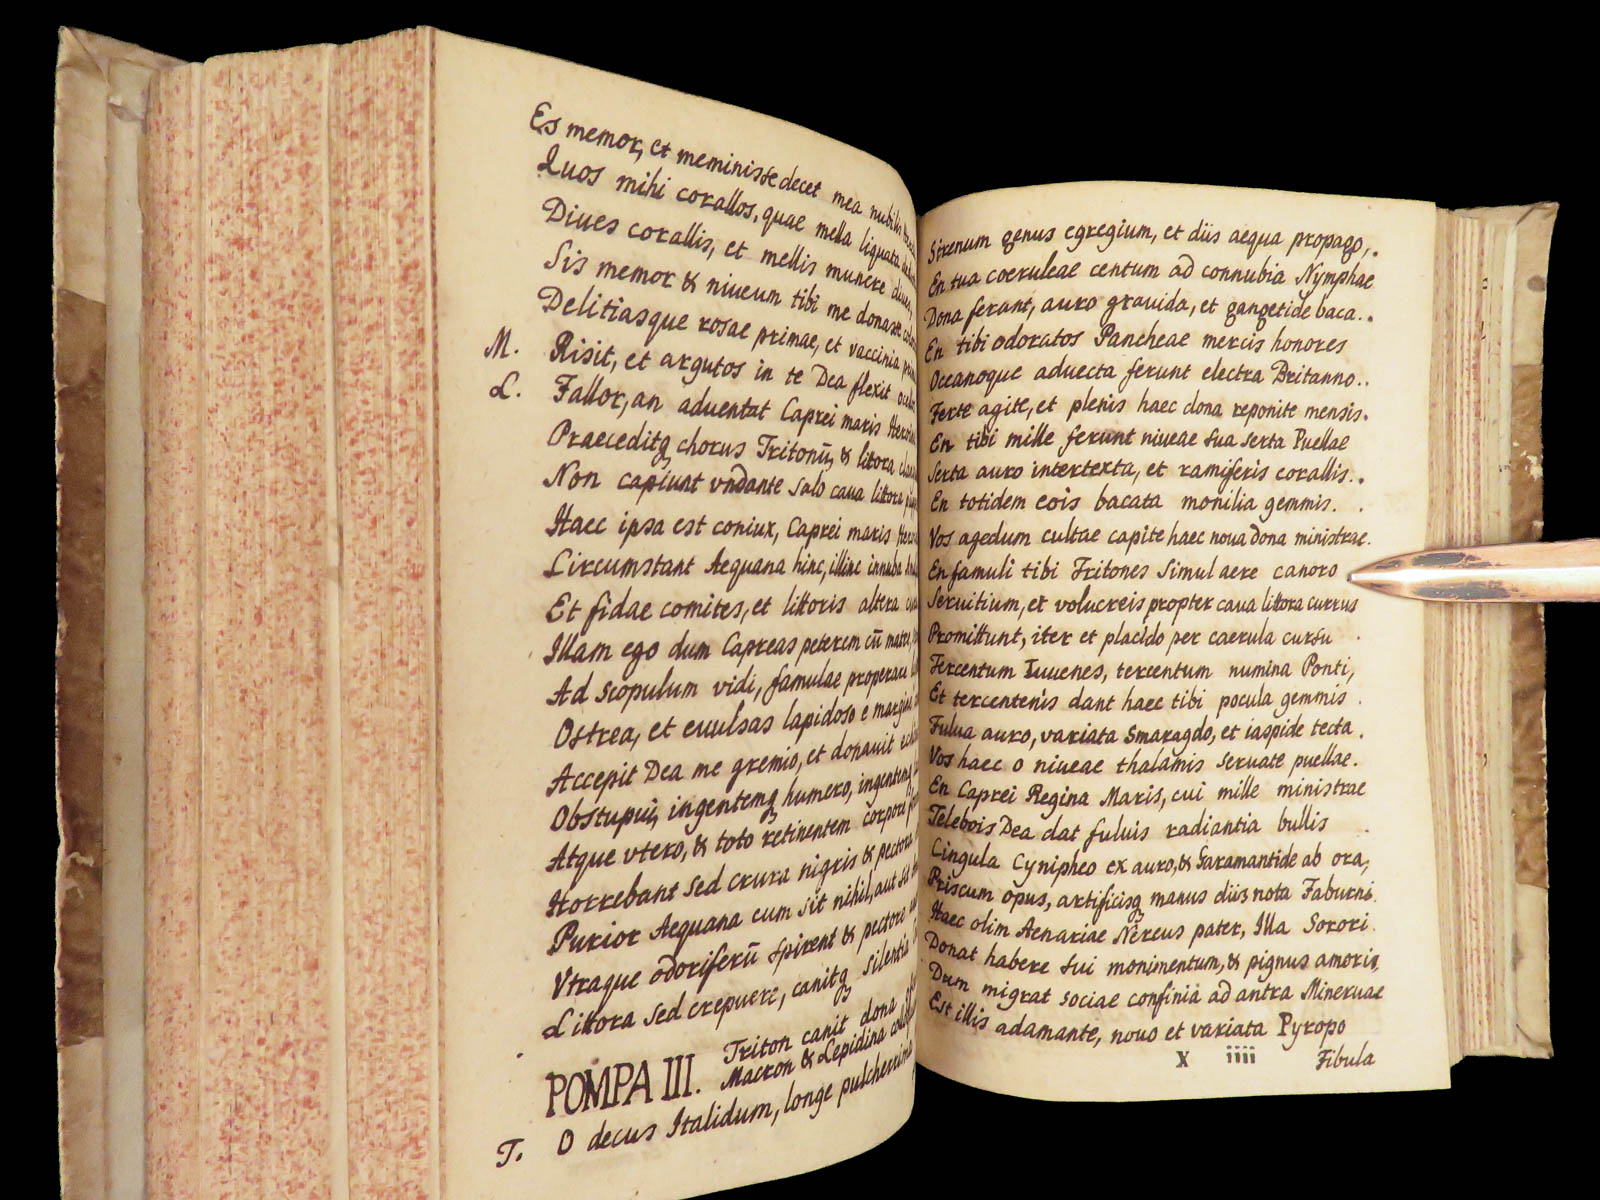 Es memor, et meminisse decet mea nubilis
Quos mihi corallos, quae mella liquata
Diues corallis, et mellis munere diues,
Sis memor & niueum tibi me donasse
Delitiasque rosae primae, et vaccinia
M. Risit, et argutos in te Dea flexit
L. Fallor, an aduentat Caprei maris
Praeceditq chorus Tritonũ, & litora
Non capiunt vndante salo caua littora
Haec ipsa est coniux, Caprei maris
Circumstant Aequana hinc, illinc innuba
Et fidae comites, et littoris altera
Illam ego dum Capreas peterem cũ matre,
Ad scopulum vidi, famulae properau
Ostrea, et euulsas lapidoso e margine
Accepit Dea me gremio, et donauit
Obstupui, ingentemq humero, ingentemq
Atque vtero, & toto retinentem corpore
Horrebant sed crura nigris & pectora
Purior Aequana cum sit nihil, aut sit
Vtraque odoriferũ spirent & pectore
Littora sed crepuere, canitq silentia
POMPA III. Triton canit dona
Macron & Lepidina
T. O decus Italidum, longe pulcherrima
Sirenum genus egregium, et diis aequa propago,
En tua coeruleae centum ad connubia Nymphae
Dona ferant, auro grauida, et gangetide baca.
En tibi odoratos Pancheae mercis honores
Oceanoque aduecta ferunt electra Britanno.
Ferte agite, et plenis haec dona reponite mensis.
En tibi mille ferunt niueae sua serta Puellae
Serta auro intertexta, et ramiferis corallis.
En totidem eois bacata monilia gemmis.
Vos agedum cultae capite haec noua dona ministrae.
En famuli tibi Tritones simul aere canoro
Seruitium, et volucreis propter caua littora currus
Promittunt, iter et placido per caerula cursu
Tercentum Iuuenes, tercentum numina Ponti,
Et tercentenis dant haec tibi pocula gemmis
Fulua auro, variata Smaragdo, et iaspide tecta.
Vos haec o niueae thalamis seruate puellae.
En Caprei Regina Maris, cui mille ministrae
Telebois Dea dat fuluis radiantia bullis
Cingula Cynipheo ex auro, & Garamantide ab ora,
Priscum opus, artificisq manus diis nota Faburni.
Haec olim Aenariae Nereus pater, Illa Sorori
Donat habere sui monimentum, & pignus amoris,
Dum migrat sociae confinia ad antra Mineruae
Est illis adamante, nouo et variata Pyropo
X iiii Fibula